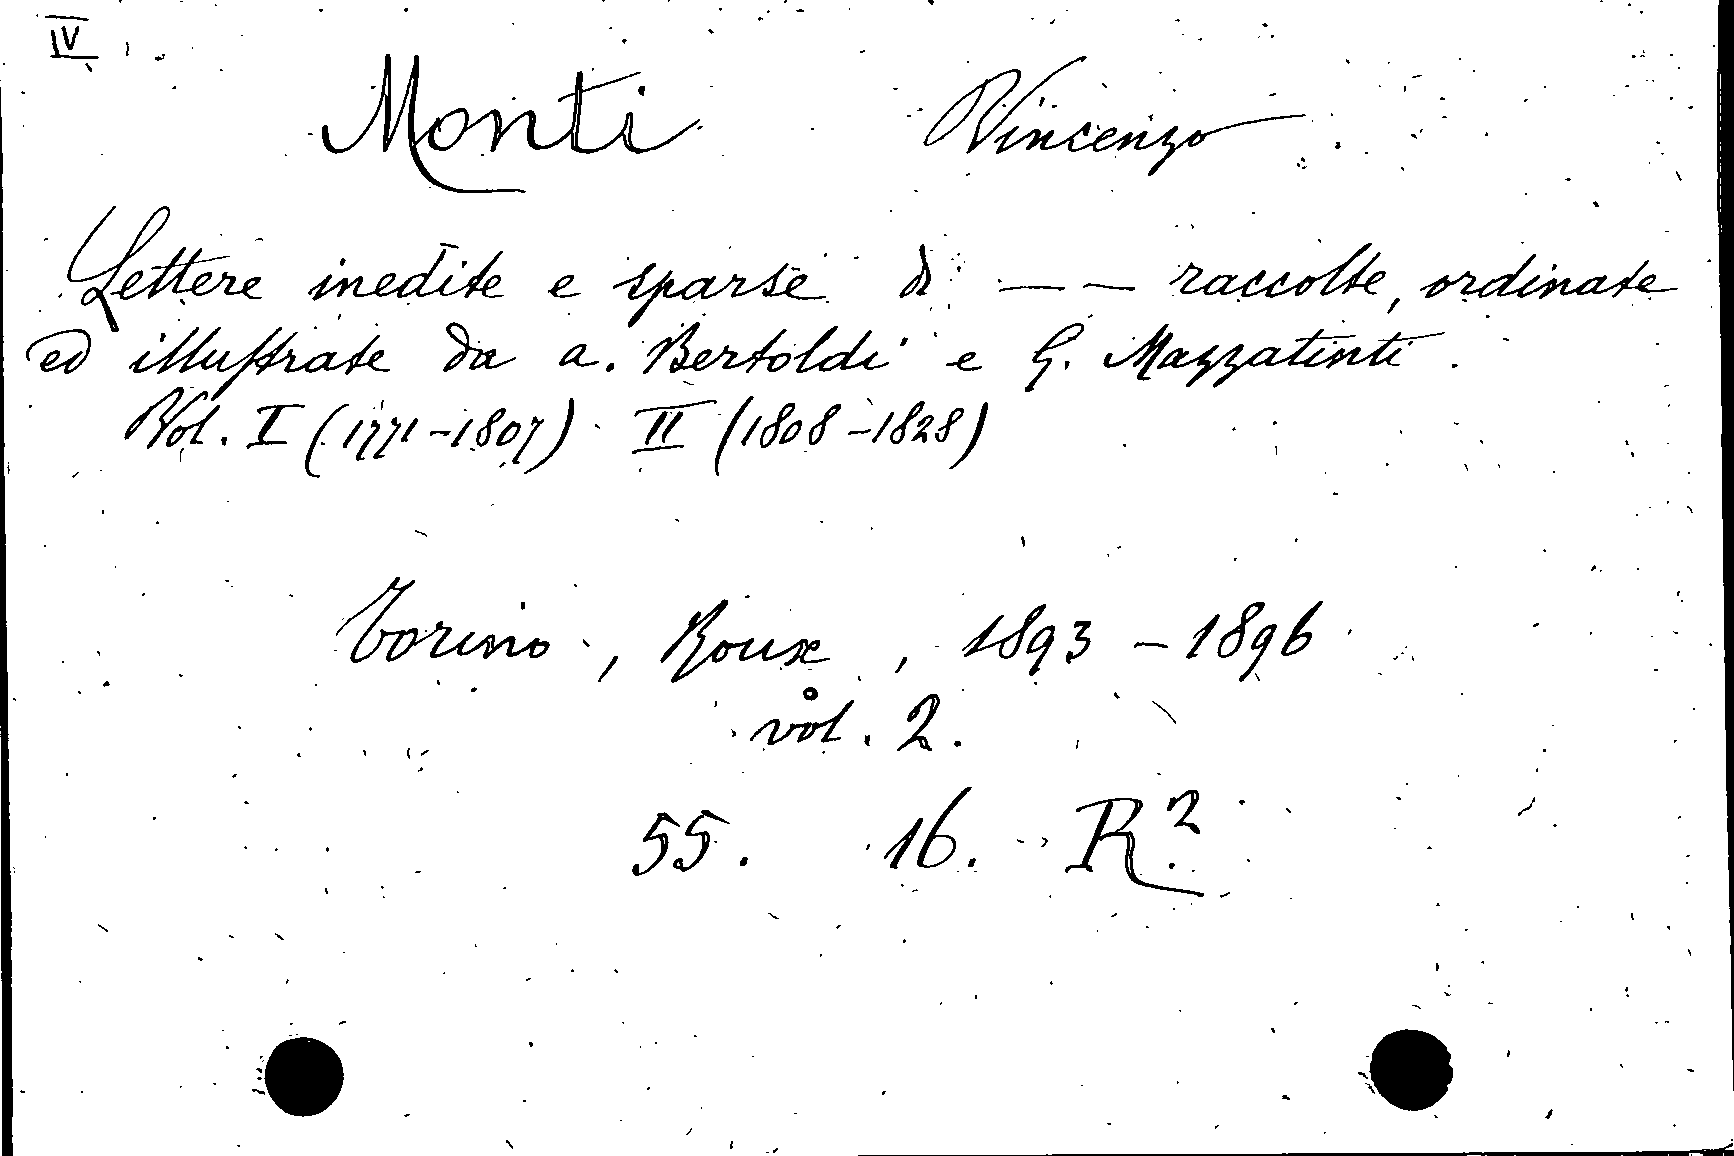 IV
Monti Vincenzo
Lettere inedite e sparse di — — raccolte, ordinate
ed illustrate da A. Bertoldi e G. Mazzatinti.
Vol. I (1771-1807) II (1808-1828)
Torino, Roux, 1893-1896
vol. 2.
55. 16. R.2